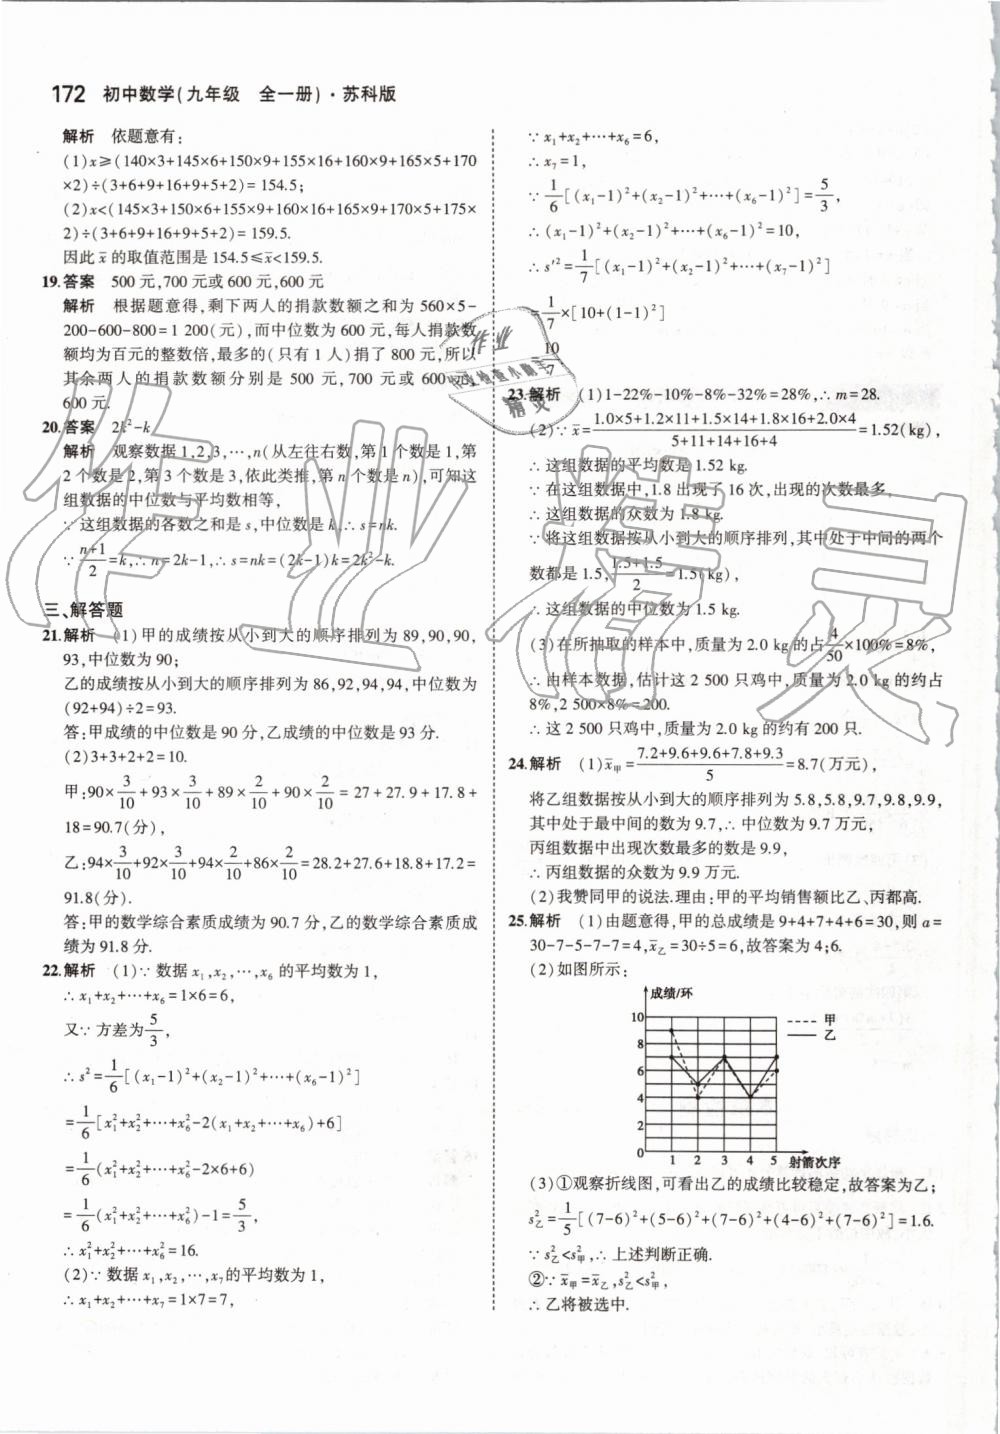 172 初中数学(九年级 全一册)·苏科版
解析 依题意有:
(1)x≥(140×3+145×6+150×9+155×16+160×9+165×5+170
×2)÷(3+6+9+16+9+5+2)= 154.5;
(2)x<(145×3+150×6+155×9+160×16+165×9+170×5+175×
2)÷(3+6+9+16+9+5+2)= 159.5.
因此 x̄ 的取值范围是 154.5≤x̄<159.5.
19.答案 500 元,700 元或 600 元,600 元
解析 根据题意得,剩下两人的捐款数额之和为 560×5-
200-600-800=1 200(元),而中位数为 600 元,每人捐款数
额均为百元的整数倍,最多的(只有 1 人)捐了 800 元,所以
其余两人的捐款数额分别是 500 元,700 元或 600 元,
600 元.
20.答案 2k²-k
解析 观察数据 1,2,3,…,n(从左往右数,第 1 个数是 1,第
2 个数是 2,第 3 个数是 3,依此类推,第 n 个数是 n),可知这
组数据的中位数与平均数相等,
∵ 这组数据的各数之和是 s,中位数是 k,∴ s=nk.
∵ (n+1)/2=k,∴ n=2k-1,∴ s=nk=(2k-1)k=2k²-k.
三、解答题
21.解析 (1)甲的成绩按从小到大的顺序排列为 89,90,90,
93,中位数为 90;
乙的成绩按从小到大的顺序排列为 86,92,94,94,中位数为
(92+94)÷2=93.
答:甲成绩的中位数是 90 分,乙成绩的中位数是 93 分.
(2)3+3+2+2=10.
甲:90×3/10+93×3/10+89×2/10+90×2/10=27+27.9+17.8+
18=90.7(分),
乙:94×3/10+92×3/10+94×2/10+86×2/10=28.2+27.6+18.8+17.2=
91.8(分).
答:甲的数学综合素质成绩为 90.7 分,乙的数学综合素质成
绩为 91.8 分.
22.解析 (1)∵ 数据 x₁,x₂,…,x₆ 的平均数为 1,
∴ x₁+x₂+…+x₆=1×6=6,
又∵ 方差为5/3,
∴ s²=1/6[(x₁-1)²+(x₂-1)²+…+(x₆-1)²]
=1/6[x₁²+x₂²+…+x₆²-2(x₁+x₂+…+x₆)+6]
=1/6(x₁²+x₂²+…+x₆²-2×6+6)
=1/6(x₁²+x₂²+…+x₆²)-1=5/3,
∴ x₁²+x₂²+…+x₆²=16.
(2)∵ 数据 x₁,x₂,…,x₇的平均数为 1,
∴ x₁+x₂+…+x₇=1×7=7,
∵ x₁+x₂+…+x₆=6,
∴ x₇=1,
∵ 1/6[(x₁-1)²+(x₂-1)²+…+(x₆-1)²]=5/3,
∴ (x₁-1)²+(x₂-1)²+…+(x₆-1)²=10,
∴ s′²=1/7[(x₁-1)²+(x₂-1)²+…+(x₇-1)²]
=1/7×[10+(1-1)²]
=10/7.
23.解析 (1)1-22%-10%-8%-32%=28%,∴ m=28.
(2)∵ x̄=(1.0×5+1.2×11+1.5×14+1.8×16+2.0×4)/(5+11+14+16+4)=1.52(kg),
∴ 这组数据的平均数是 1.52 kg.
∵ 在这组数据中,1.8 出现了 16 次,出现的次数最多,
∴ 这组数据的众数为 1.8 kg.
∵ 将这组数据按从小到大的顺序排列,其中处于中间的两个
数都是 1.5,(1.5+1.5)/2=1.5(kg),
∴ 这组数据的中位数为 1.5 kg.
(3)在所抽取的样本中,质量为 2.0 kg 的占4/50×100%=8%,
∴ 由样本数据,估计这 2 500 只鸡中,质量为 2.0 kg 的约占
8%,2 500×8%=200.
∴ 这 2 500 只鸡中,质量为 2.0 kg 的约有 200 只.
24.解析 (1)x̄甲=(7.2+9.6+9.6+7.8+9.3)/5=8.7(万元),
将乙组数据按从小到大的顺序排列为 5.8,5.8,9.7,9.8,9.9,
其中处于最中间的数为 9.7,∴ 中位数为 9.7 万元,
丙组数据中出现次数最多的数是 9.9,
∴ 丙组数据的众数为 9.9 万元.
(2)我赞同甲的说法.理由:甲的平均销售额比乙、丙都高.
25.解析 (1)由题意得,甲的总成绩是 9+4+7+4+6=30,则 a=
30-7-5-7-7=4,x̄乙=30÷5=6,故答案为 4;6.
(2)如图所示:
成绩/环
10
8
6
4
2
0
1 2 3 4 5 射箭次序
甲
乙
(3)①观察折线图,可看出乙的成绩比较稳定,故答案为乙;
s²乙=1/5[(7-6)²+(5-6)²+(7-6)²+(4-6)²+(7-6)²]=1.6.
∵ s²乙<s²甲,∴ 上述判断正确.
②∵ x̄甲=x̄乙,s²乙<s²甲,
∴ 乙将被选中.
作业精灵